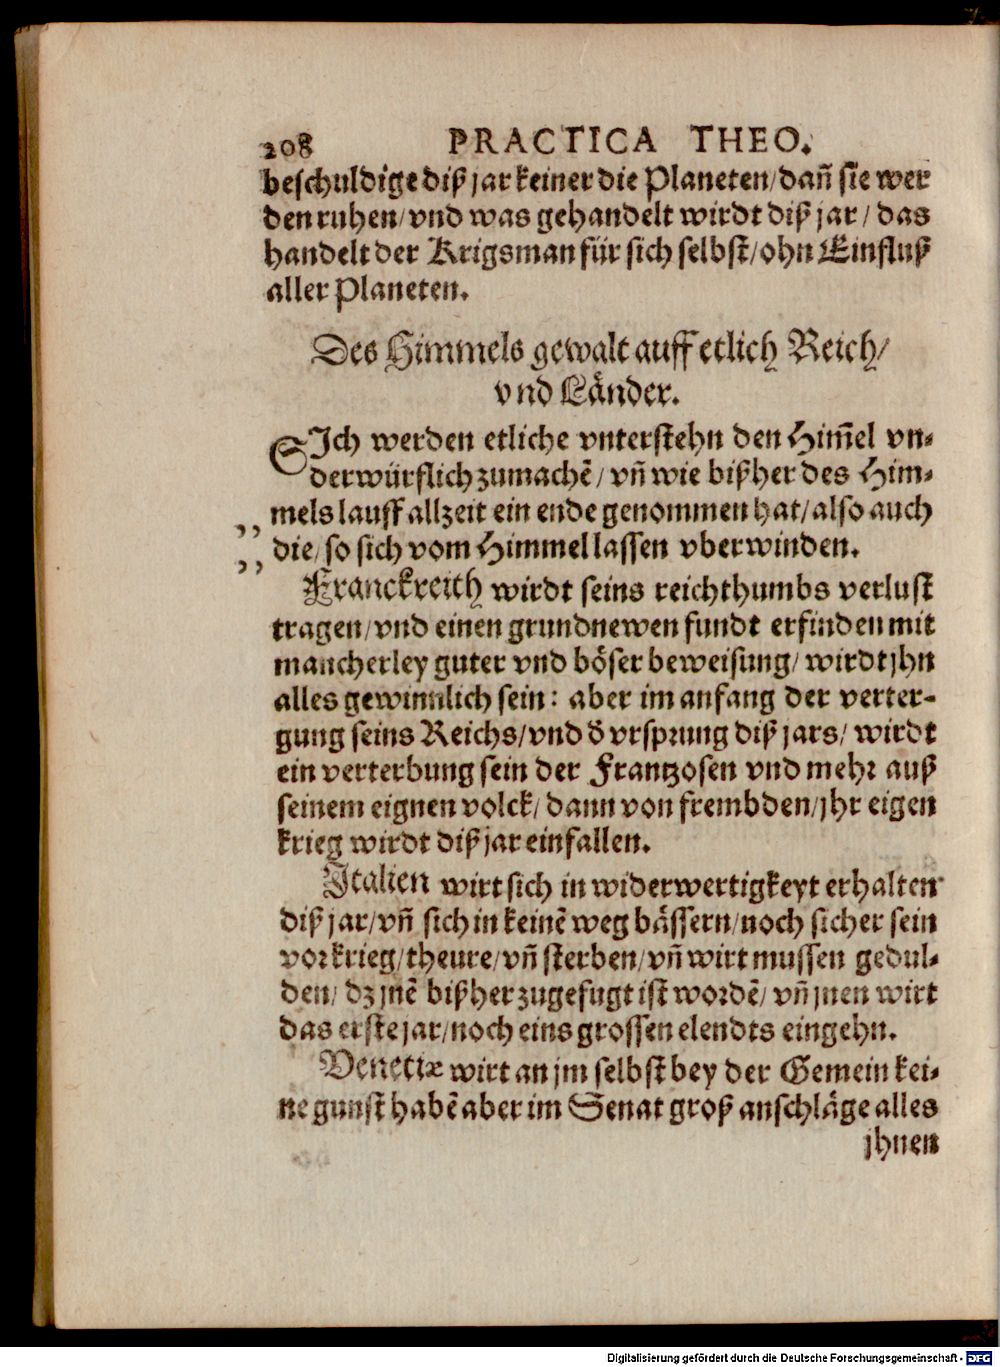 208 PRACTICA THEO.
beschuldige diß jar keiner die Planeten/dañ sie wer
den ruhen/vnd was gehandelt wirdt diß jar/das
handelt der Krigsman für sich selbst/ohn Einfluß
aller Planeten.
Des Himmels gewalt auff etlich Reich/
vnd Länder.
SIch werden etliche vnterstehn den Him̃el vn-
derwürflich zumachẽ/vñ wie bißher des Him-
mels lauff allzeit ein ende genommen hat/also auch
,, die/so sich vom Himmel lassen vberwinden.
,,
Franckreich wirdt seins reichthumbs verlust
tragen/vnd einen grundnewen fundt erfinden mit
mancherley guter vnd böser beweisung/wirdt jhn
alles gewinnlich sein: aber im anfang der verter-
gung seins Reichs/vnd ð vrsprung diß jars/wirdt
ein verterbung sein der Frantzosen vnd mehr auß
seinem eignen volck/dann von frembden/jhr eigen
krieg wirdt diß jar einfallen.
Italien wirt sich in widerwertigkeyt erhalten
diß jar/vñ sich in keinẽ weg bässern/noch sicher sein
vor krieg/theure/vñ sterben/vñ wirt mussen gedul-
den/dz jnẽ bißher zugefugt ist wordẽ/vñ jnen wirt
das erste jar/noch eins grossen elendts eingehn.
Venetiæ wirt an jm selbst bey der Gemein kei-
ne gunst habẽ aber im Senat groß anschläge alles
jhnen
Digitalisierung gefördert durch die Deutsche Forschungsgemeinschaft - DFG